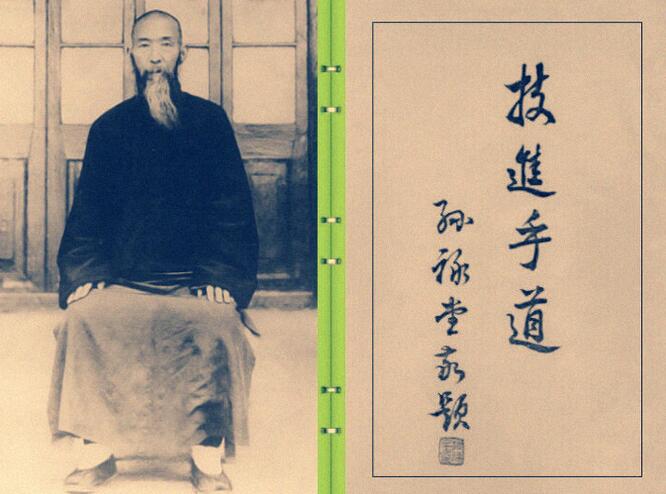 技進乎道
孫祿堂敬題